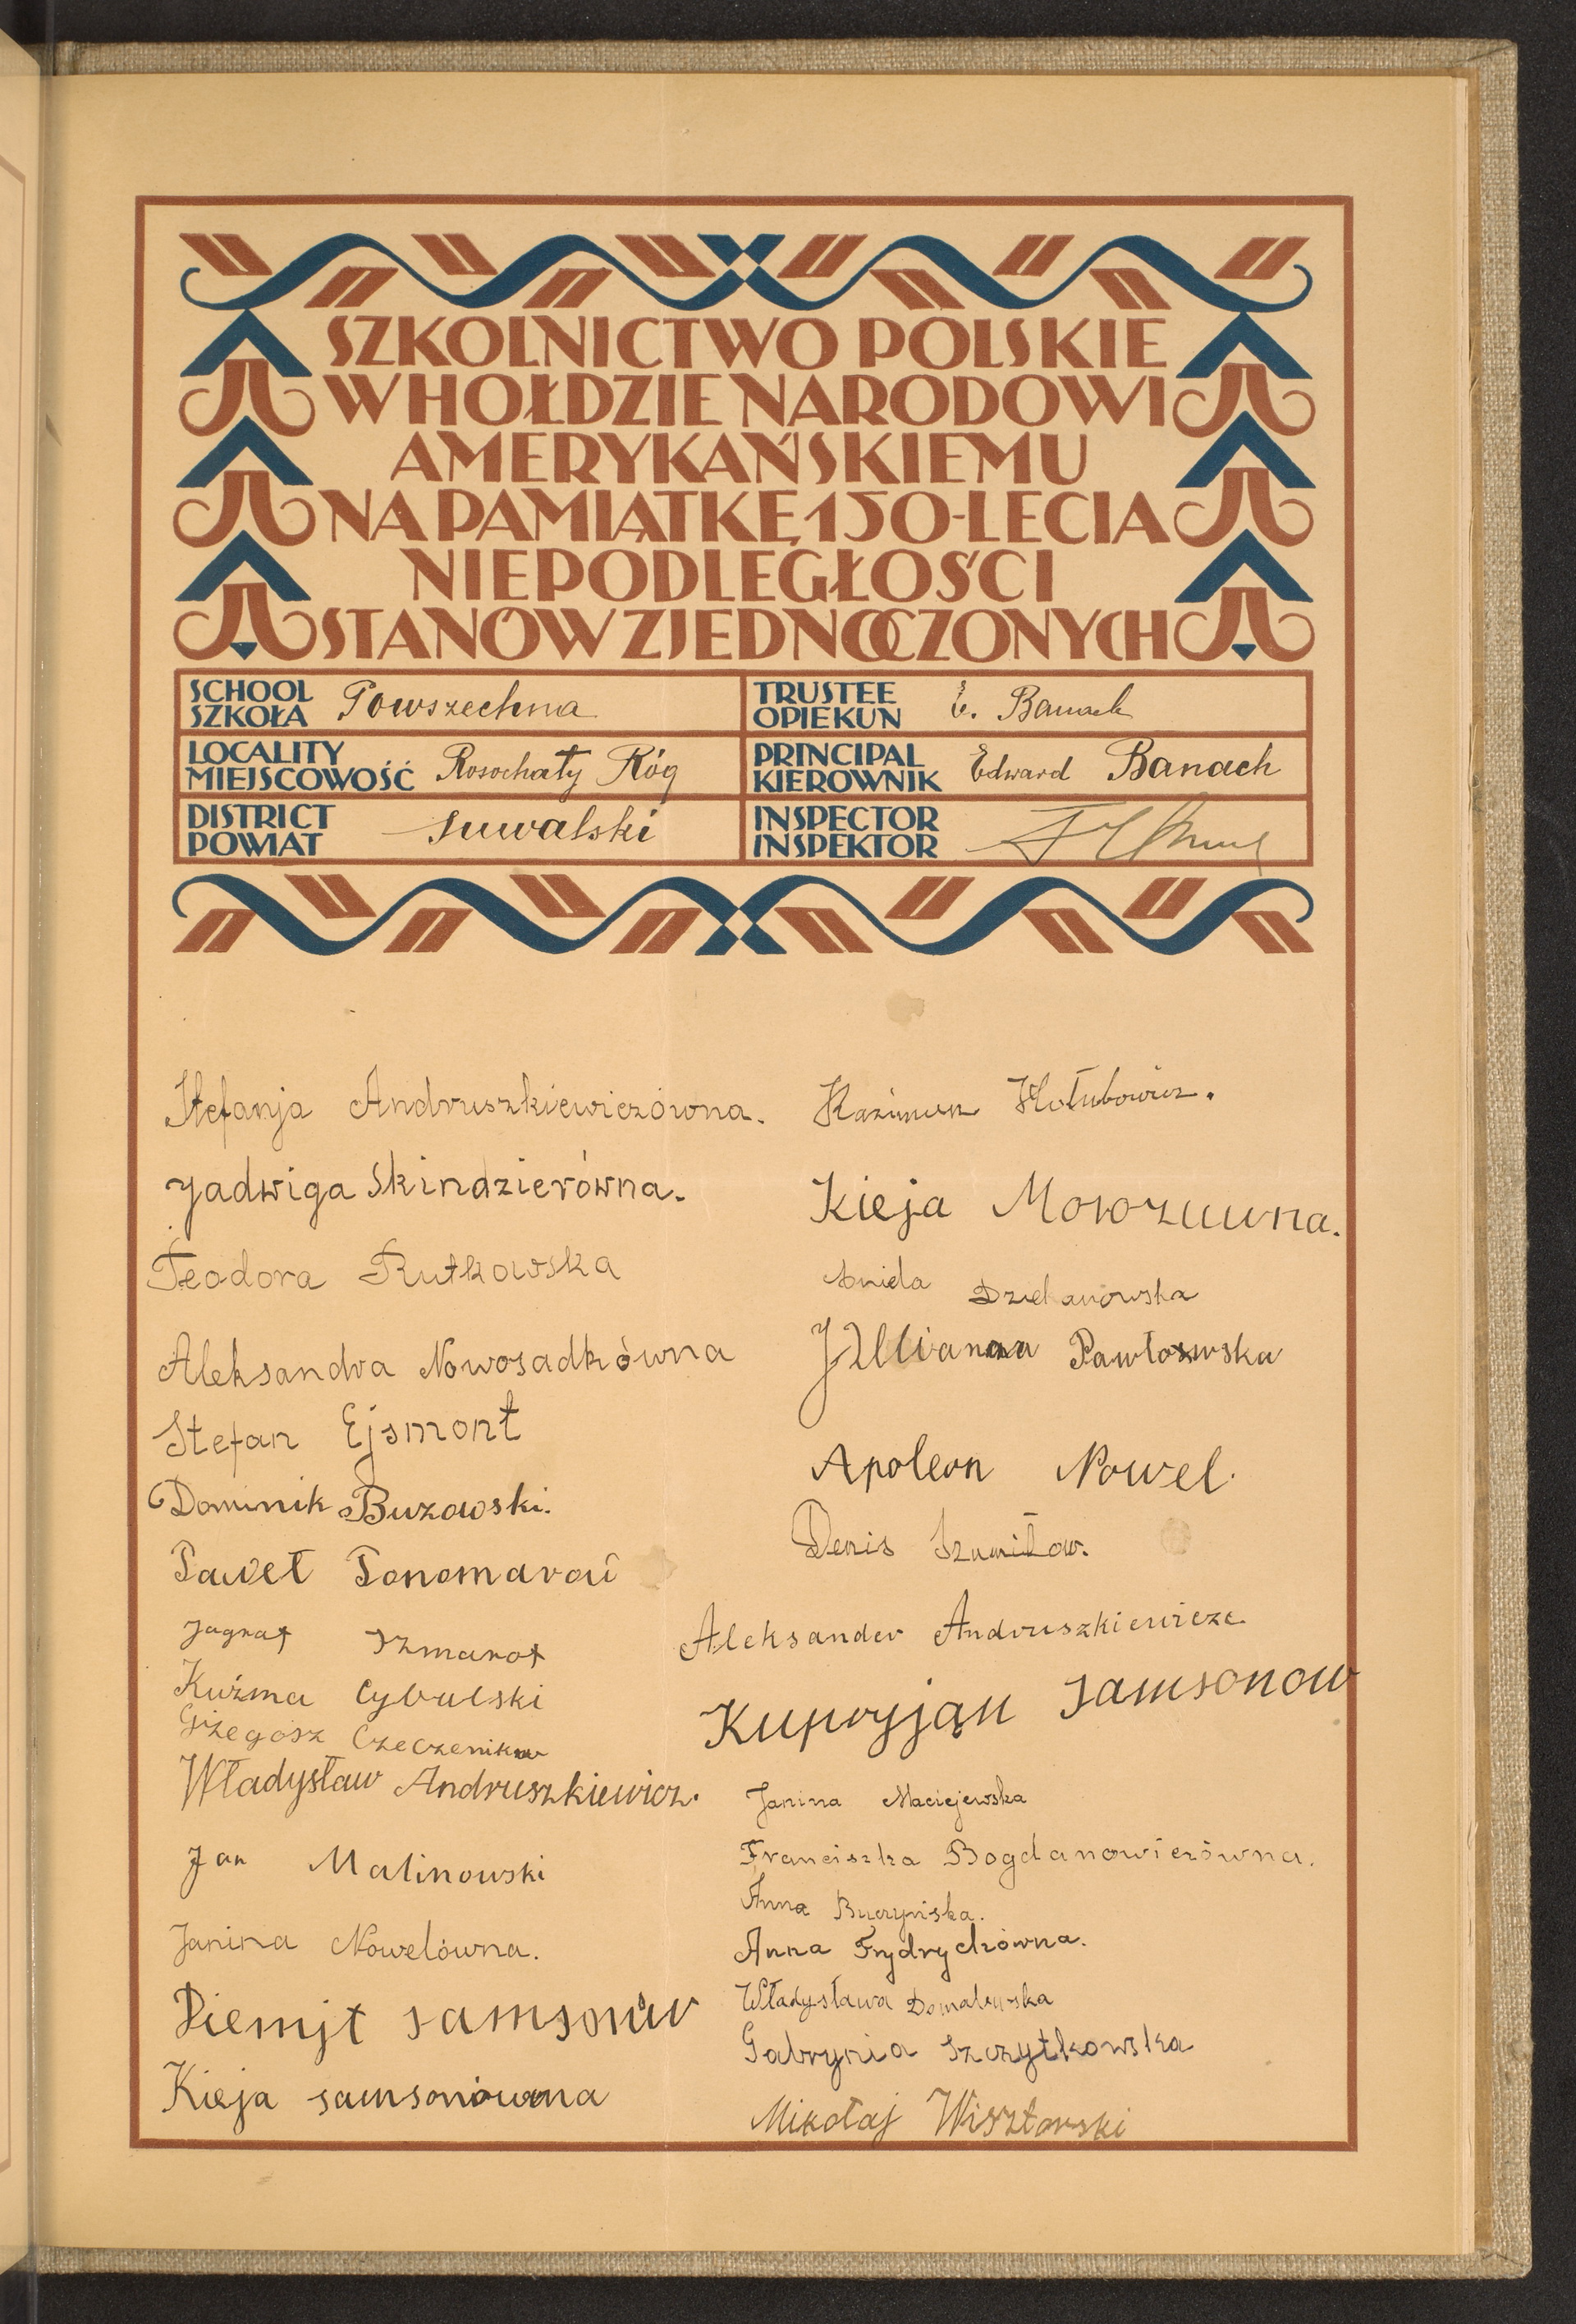 SZKOLNICTWO POLSKIE
W HOŁDZIE NARODOWI
AMERYKAŃSKIEMU
NA PAMIĄTKĘ 150-LECIA
NIEPODLEGŁOŚCI
STANÓW ZJEDNOCZONYCH
SCHOOL
SZKOŁA Powszechna
TRUSTEE
OPIEKUN E. Banach
LOCALITY
MIEJSCOWOŚĆ Rosochaty Róg
PRINCIPAL
KIEROWNIK Edward Banach
DISTRICT
POWIAT suwalski
INSPECTOR
INSPEKTOR
Stefanja Andruszkiewiczówna.
Jadwiga Skindzierówna.
Teodora Rutkowska
Aleksandra Nowosadkówna
Stefan Ejsmont
Dominik Buzowski.
Paweł Ponomarow
Jagnat
Kuźma Cybulski
Gżegosz Czeczenikow
Władysław Andruszkiewicz.
Jan Malinowski
Janina Nowelówna.
Diemjt samsonów
Kieja samsonówna
Kazimierz Hołubowicz.
Kieja
Aniela Dziekanowska
Julianna Pawłowska
Apoleon Nowel.
Denis Szumiłow.
Aleksander Andruszkiewicze
Kupryjąn Samsonow
Janina Maciejewska
Franciszka Bogdanowiczówna.
Anna Buczyńska.
Anna Frydrychówna.
Władysława
Gabrynia Szczytkowska
Mikołaj